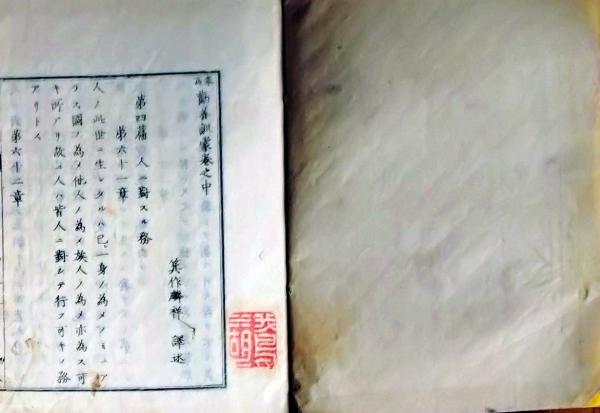 泰西勸善訓蒙巻之中
箕作麟祥 譯述
第四篇 人ニ對スル務
第六十一章
人ノ此世ニ生レタルハ已レ一身ノ為メノミニア
ラス國ノ為メ他人ノ為メ族人ノ為メ亦為ス可
キ所アリ故ニ人ハ皆人ニ對シテ行フ可キノ務
アリトス
第六十二章